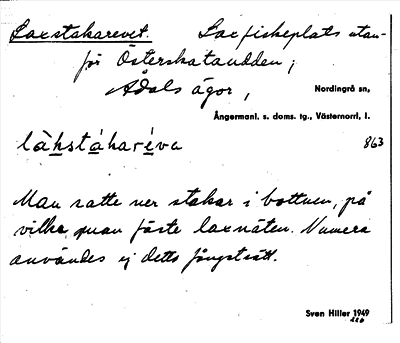 Laxstakarevet. Laxfiskeplats utan-
för Österskataudden,
Ådals ägor, Nordingrå sn,
Ångermanl. s. doms. tg., Västernorrl, l.
làkstákaréva 863
Man satte ner stakar i bottnen, på
vilka man fäste laxnäten. Numera
användes ej detta fångstsätt.
Sven Hiller 1949